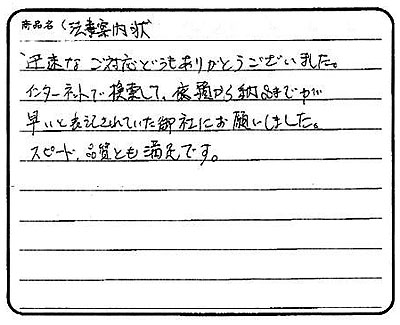 商品名（法要案内状
迅速なご対応どうもありがとうございました。
インターネットで検索して、依頼から納品までが
早いと表記されていた御社にお願いしました。
スピード、品質とも満足です。